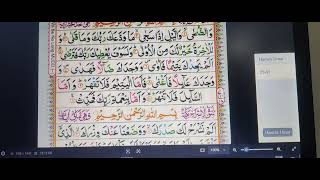 وَالضُّحٰى ۙ وَالَّيْلِ اِذَا سَجٰى ۙ مَا وَدَّعَكَ رَبُّكَ وَمَا قَلٰى ؕ وَ
لَلْاٰخِرَةُ خَيْرٌ لَّكَ مِنَ الْاُوْلٰى ؕ وَلَسَوْفَ يُعْطِيْكَ رَبُّكَ فَتَرْضٰى ؕ
اَلَمْ يَجِدْكَ يَتِيْمًا فَاٰوٰى ۪ وَوَجَدَكَ ضَآلًّا فَهَدٰى ۪ وَ
وَجَدَكَ عَآئِلًا فَاَغْنٰى ؕ فَاَمَّا الْيَتِيْمَ فَلَا تَقْهَرْ ؕ وَاَمَّا
السَّآئِلَ فَلَا تَنْهَرْ ؕ وَاَمَّا بِنِعْمَةِ رَبِّكَ فَحَدِّثْ
بِسْمِ اللّٰهِ الرَّحْمٰنِ الرَّحِيْمِ
اَلَمْ نَشْرَحْ لَكَ صَدْرَكَ ۙ وَوَضَعْنَا عَنْكَ وِزْرَكَ ۙ الَّذِيْٓ
100%